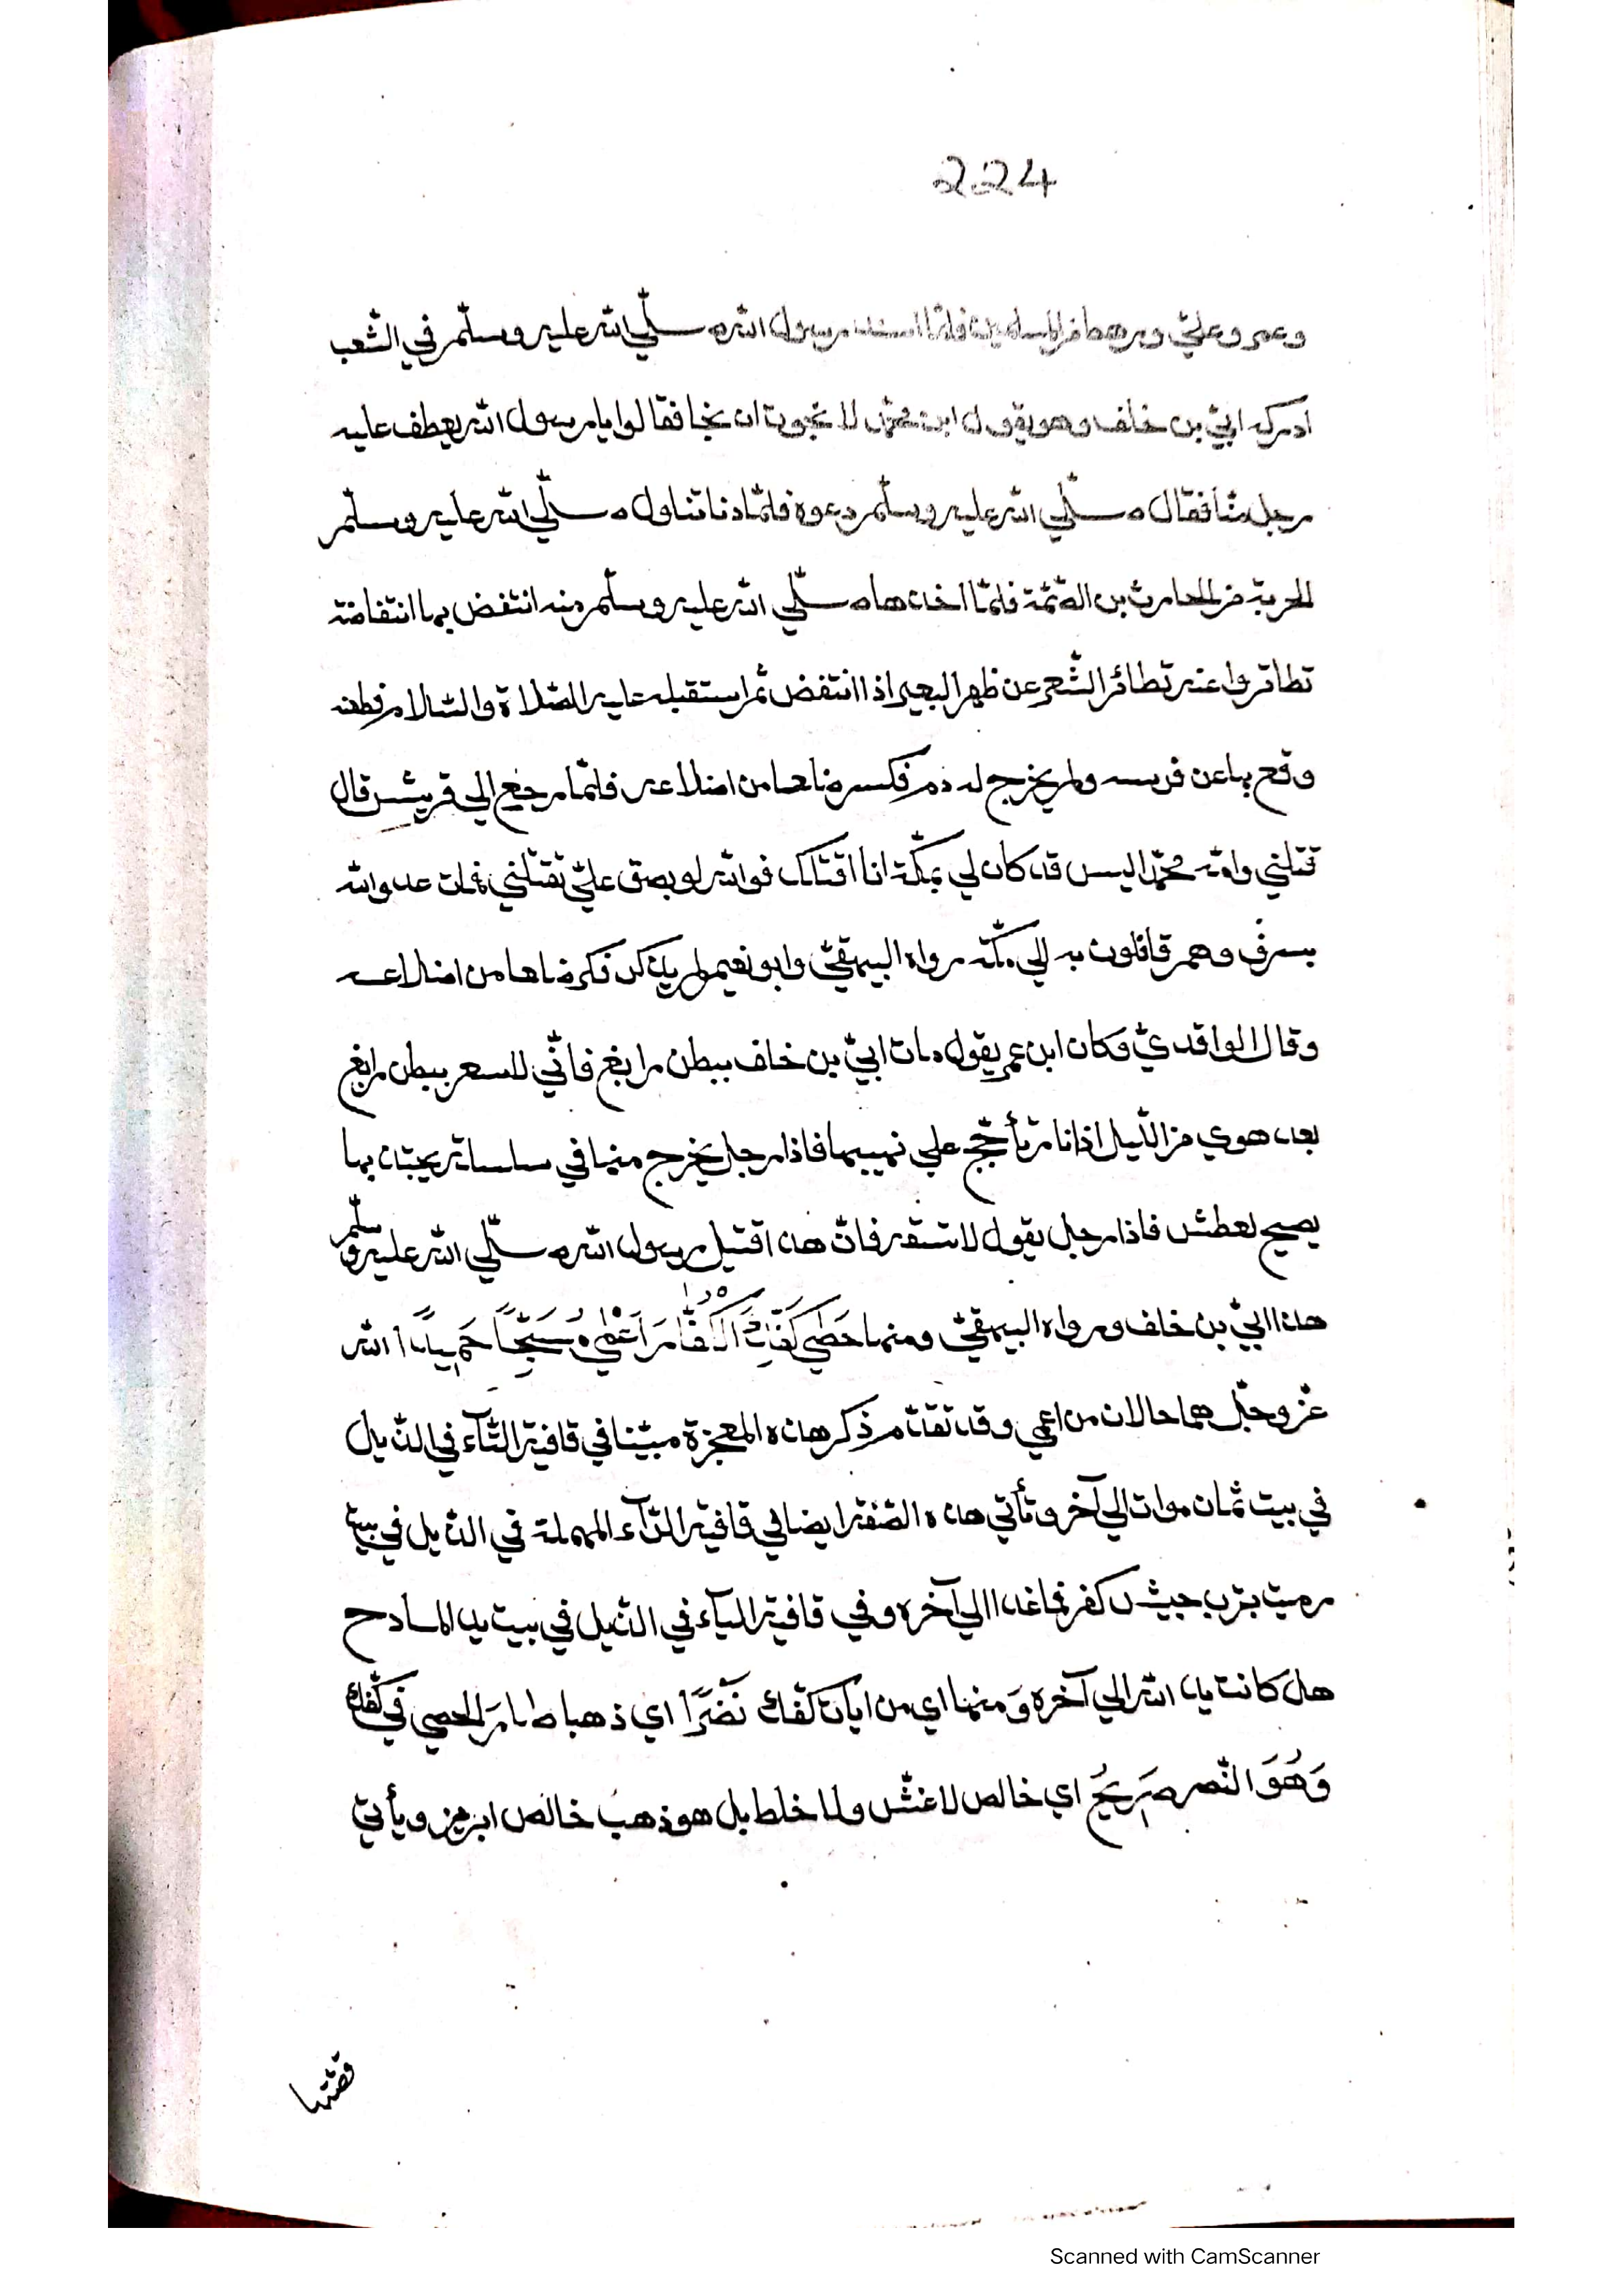 224
وعمر وعليّ ورهط من المسلمين فلمّا اسند رسول الله صلّي الله عليه وسلّم في الشّعب
ادركه ابيّ بن خلف وهو يقول اين محمّد لا نجوت ان نجا فقالوا يا رسول الله يعطف عليه
رجل منّا فقال صلّي الله عليه وسلّم دعوه فلمّا دنا تناول صلّي الله عليه وسلّم
الحربة من الحارث بن الصّمّة فلمّا اخذها صلّي الله عليه وسلّم منه انتفض بها انتفاضة
تطائروا عنه تطائر الشّعر عن ظهر البعير اذا انتفض ثم استقبله عليه الصّلاة والسّلام فطعنه
وقع بها عن فرسه ولم يخرج له دم فكسر ضلعا من اضلاعه فلمّا رجع الي قريش قال
قتلني والله محمّد اليس قد كان لي بمكّة انا اقتلك فوالله لو بصق عليّ لقتلني فمات عدو الله
بسرف وهم قافلون به الي مكّة رواه البيهقيّ وابو نعيم ولم يذكر فكسر ضلعا من اضلاعه
وقال الواقديّ وكان ابن عمر يقول مات ابيّ بن خلف ببطن رابغ فانّي للسعر ببطن رابغ
بعد هوي من اللّيل اذا نار تأجّج علي نهيبها فاذا رجل يخرج منها في سلسلة يجتذ بها
يصيح لعطش فاذا رجل يقول لا تسقه فانّ هذا قتيل رسول الله صلّي الله عليه وسلّم
هذا ابيّ بن خلف ورواه البيهقيّ ومنها حَصَي كَفَّاكَ الْكُفَّارَ اَعْمَي مُسَبِّحًا حَمِيدًا الله
عزّ وجلّ هما حالان من اعمي وقد تقدّم ذكر هذه المعجزة مبيّنا في قافية التّآء في الذّيل
في بيت ثمان موات الي آخر وتأتي هذه الصّفة ايضا في قافية الرّآء المهملة في الذّيل في بيت
رميت بترب جيش كفر فما غدا الي آخره وفي قافية اليآء في الذّيل في بيت يد المادح
هل كانت يد الله الي آخره وَمنها اي من ايات كفّك نَضْرًا اي ذهبا طار الحصي في كَفِّكَ
وَهُوَ النّصر صَرِيحُ اي خالص لا غشّ ولا خلط بل هو ذهب خالص ابريز ويأتي
قصّتها
Scanned with CamScanner